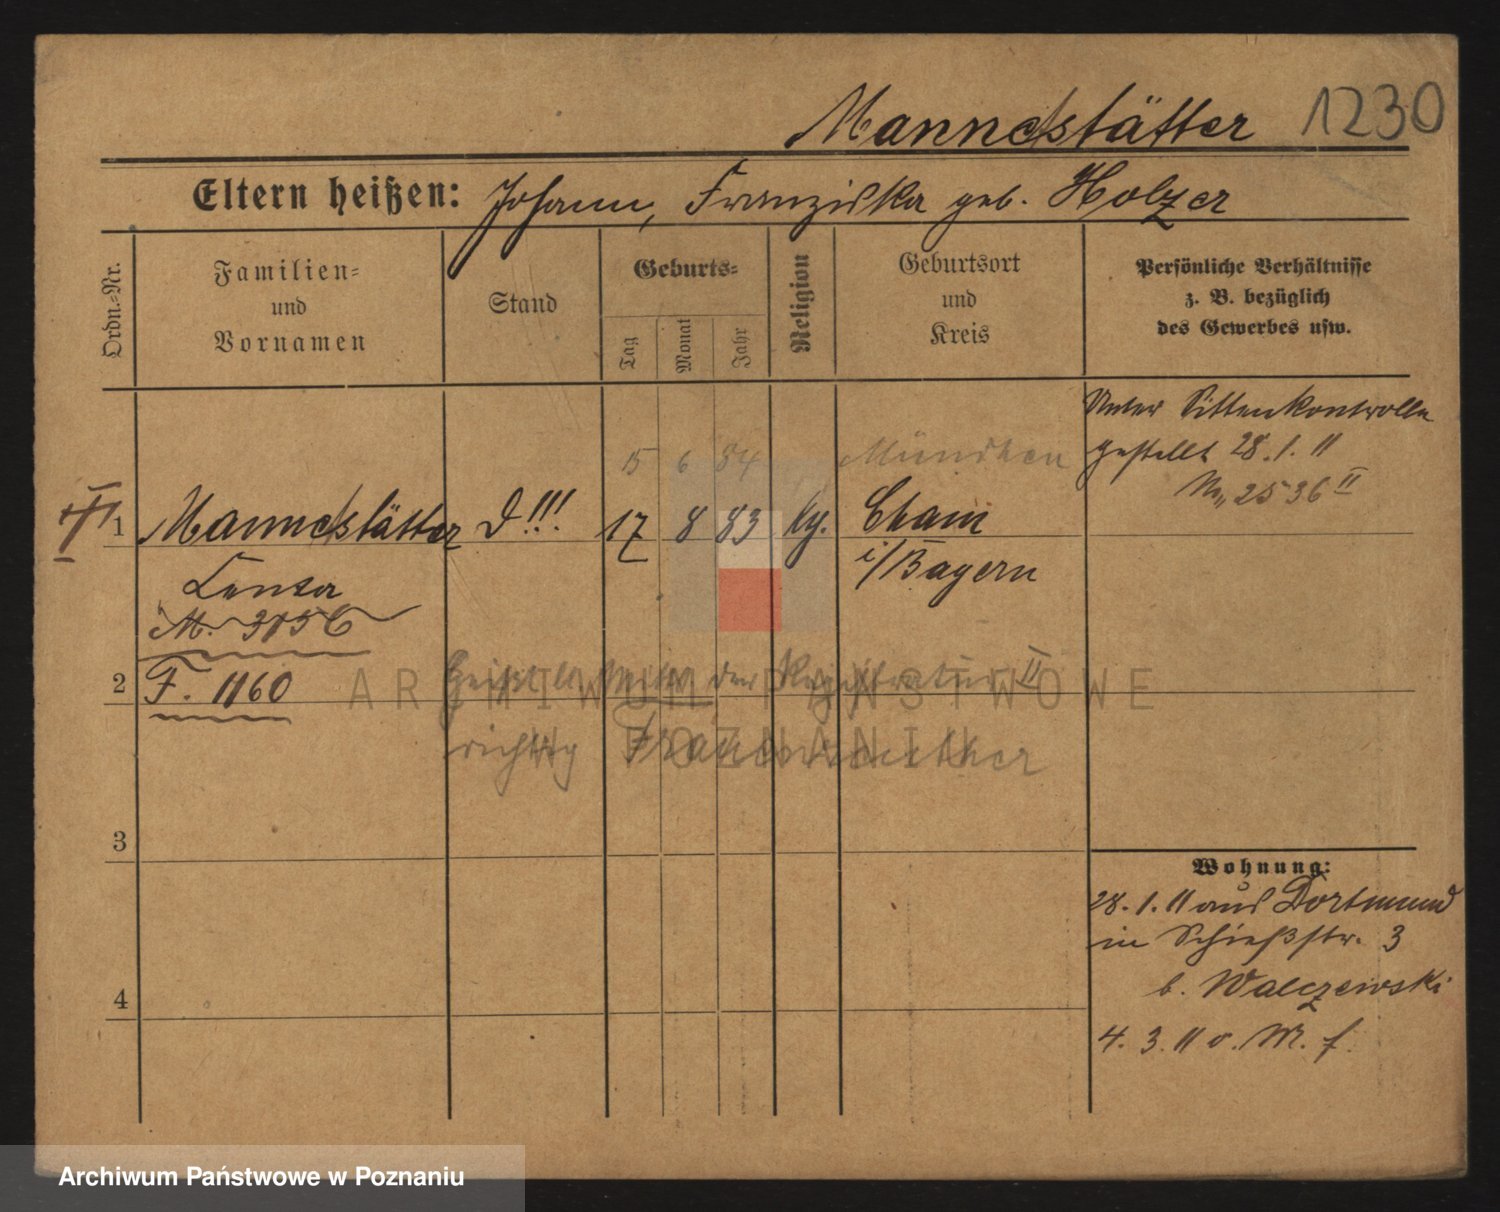 Mannestätter 1230
Eltern heißen: Johann, Franziska geb. Holzer
Ordn.-Nr.
Familien-
und
Vornamen
Stand
Geburts-
Tag
Monat
Jahr
Religion
Geburtsort
und
Kreis
Persönliche Verhältnisse
z. B. bezüglich
des Gewerbes usw.
Unter Sittenkontrolle
gestellt 28.1.11
2536 II
15 6 84 München
1 Mannestätter D!!! 17 8 83 kg. Cham
i/Bayern
Lenka
M. 3156
2 F. 1160
der Registratur II
richtig
ARCHIWUM PAŃSTWOWE
W POZNANIU
3
Wohnung:
28.1.11 aus Dortmund
in Schießstr. 3
b. Walczewski
4
4.3.11 v. M. f.
Archiwum Państwowe w Poznaniu